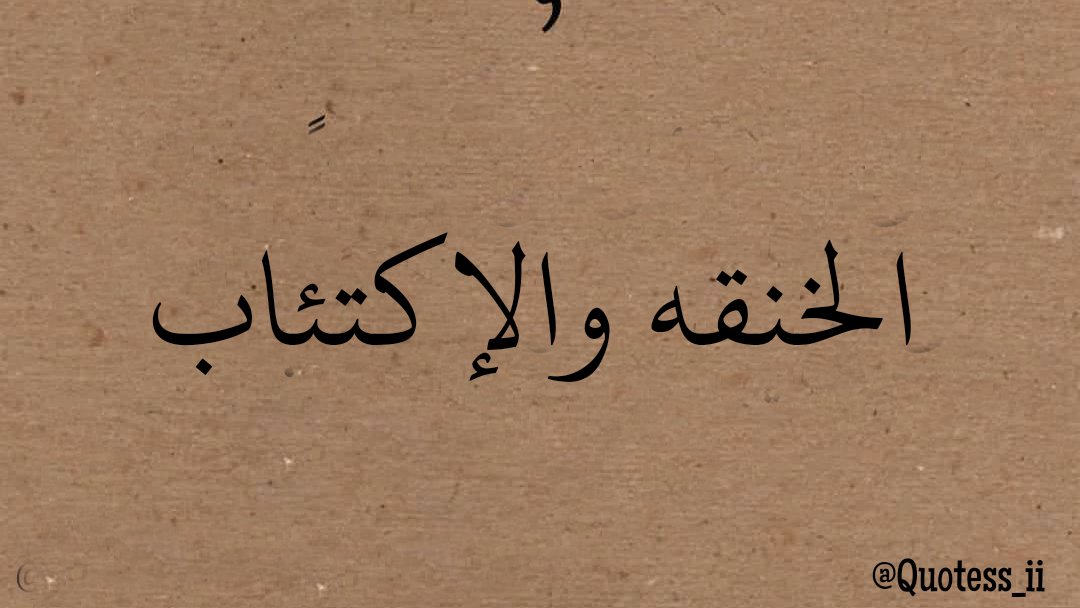 الخنقه والإكتئاب
@Quotess_ii